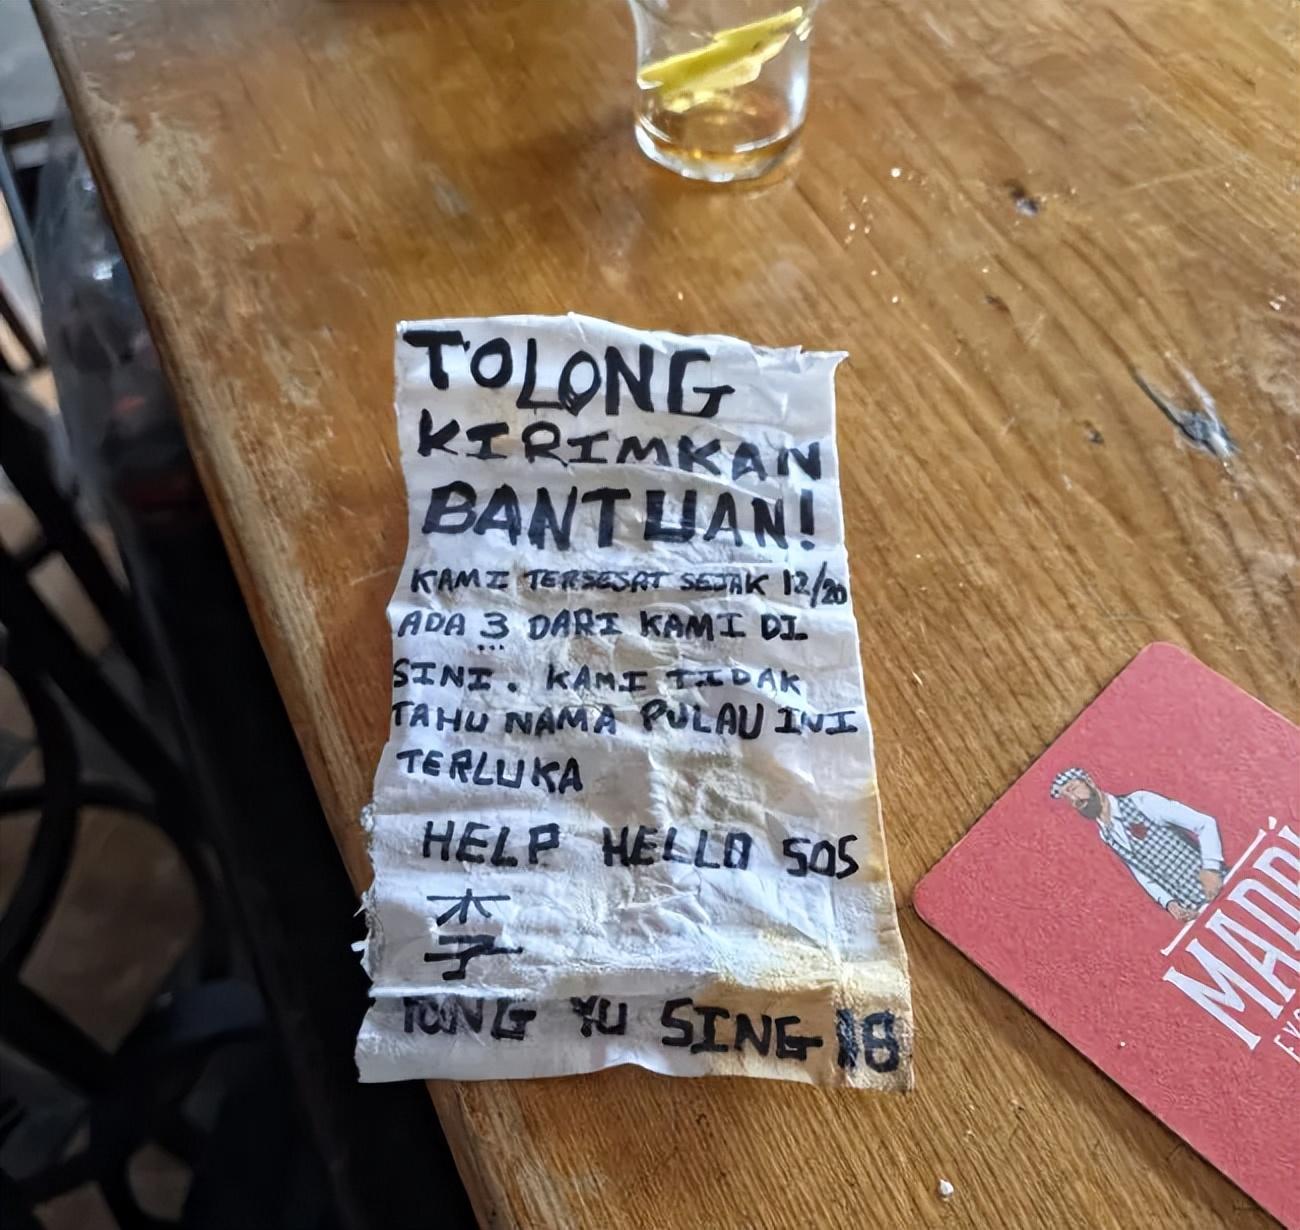 TOLONG
KIRIMKAN
BANTUAN!
KAMI TERSESAT SEJAK 12/20
ADA 3 DARI KAMI DI
SINI. KAMI TIDAK
TAHU NAMA PULAU INI
TERLUKA
HELP HELLO SOS
木
子
TONG YU SING 18